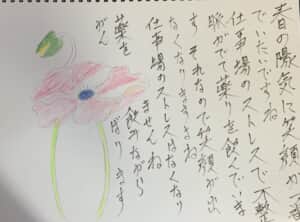 春の陽気に笑顔が
でいたいですね
仕事場のストレスで不整
脈がでて薬りを飲んでいま
す それなので笑顔が出
なくなりますね
仕事場のストレスはなくなり
ませんね
薬を飲みながら
がんばります